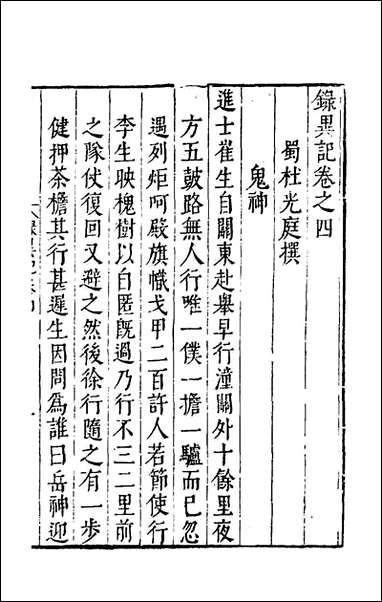 錄異記卷之四
蜀杜光庭撰
鬼神
進士崔生自關東赴舉早行潼關外十餘里夜
方五鼓路無人行唯一僕一擔一驢而已忽
遇列炬呵殿旗幟戈甲二百許人若節使行
李生映槐樹以自匿旣過乃行不三二里前
之隊仗復回又避之然後徐行隨之有一步
健押茶檐其行甚遲生因問為誰曰岳神迎